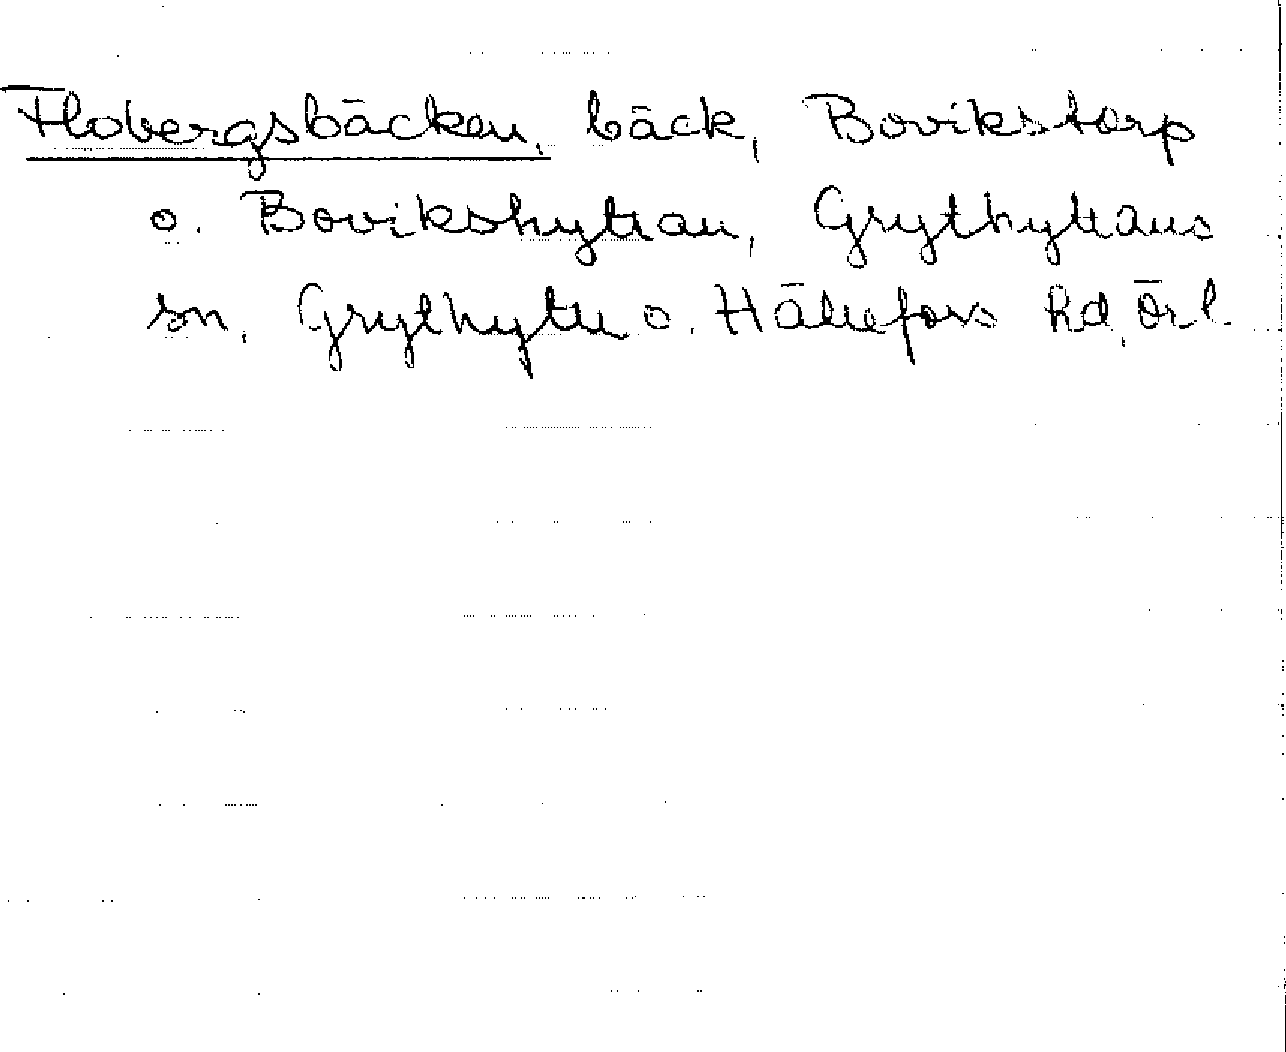 Flobergsbäcken, bäck, Bovikstorp
o. Bovikshyttan, Grythyttans
sn, Grythytte o. Hällefors hd, Örl.